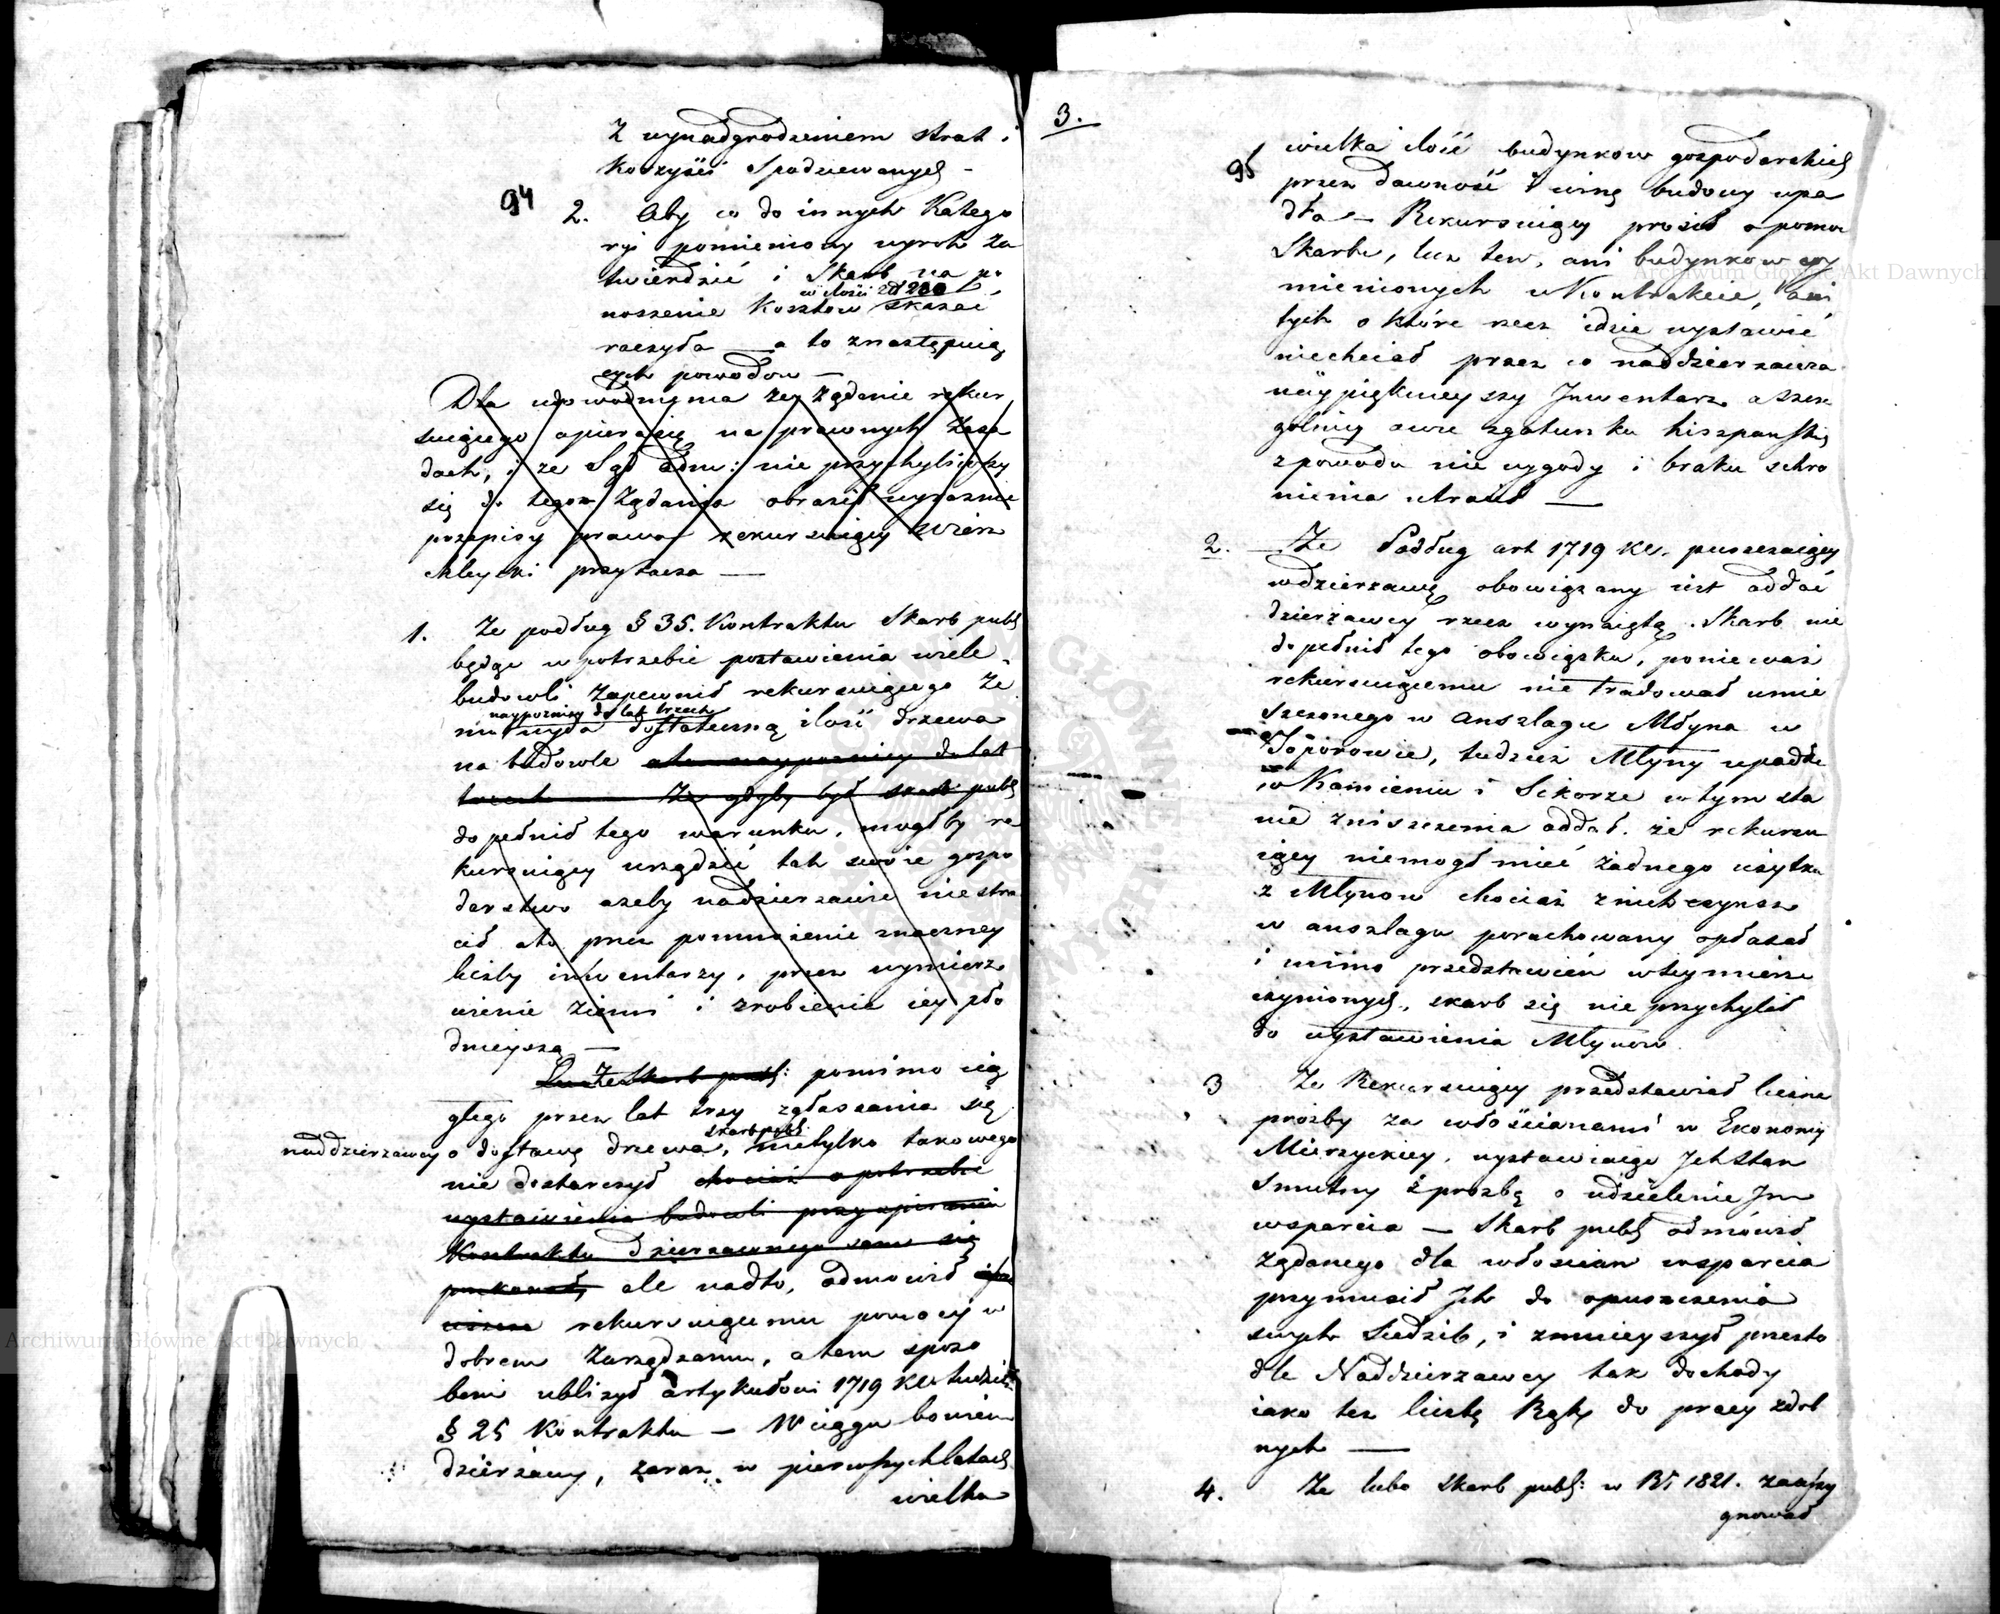 94
z wynadgrodzeniem strat i
Korzyści Spodziewanych -
2. Aby co do innych Katego
ryi pomieniony wyrok za
twierdzić i Skarb na po
w ilości zł 200
noszenie Kosztow skazać
raczyła — a to z następuią
cych powodow —
Dla udowodnienia że żądanie rekur
suiącego opiera się na prawnych zasa
dach, i że Sąd Adm: nie przychyliwszy
się do tegoż żądania obraził wyraznie
przepisy prawa rekursuiący
przytacza —
1. Że podług § 35. Kontraktu Skarb publ
będąc w potrzebie postawienia wiele
budowli zapewnił rekursuiącego że
naypozniey do lat trzech
mu wyda dostateczną ilość drzewa
na budowle ale naypozniey do lat
trzech — Że gdyby był skarb publ
dopełnił tego warunku, mogłby re
kursuiący urządzić tak swoie gospo
darstwo ażeby na dzierzawie nie stra
cił a to przez pomnożenie znaczney
liczby inwentarzy, przez wymierz
wienie ziemi i zrobienie iey pło
dnieyszą —
Że Skarb publ: pomimo cią
głego przez lat trzy zgłaszania się
skarb publ:
naddzierzawcy o dostawę drzewa, nietylko takowego
nie dostarczył chociaż o potrzebie
wystawienia budowli przy opisaniu
Kontraktu dzierzawnego same się
przekonał, ale nadto, odmowił
rekursuiącemu pomocy w
dobrem zarządzaniu, a tem sposo
bem ubliżył artykułowi 1719 KC tudzież
§ 25 Kontraktu — W ciągu bowiem
dzierżawy, zaraz w pierwszych latach
wielka
3.
95
wielka ilość budynkow gospodarskich
przez dawność i winę budowy upa
dła — Rekursuiący prosił o pomoc
Skarbu, lecz ten, ani budynkow wy
mienionych w Kontrakcie, ani
tych o które rzecz idzie wystawić
niechciał przez co naddzierzawca
naypięknieyszy Inwentarz a szcze
gólniey owce z gatunku hiszpański
z powodu niewygody i braku schro
nienia utracił —
2. — Że Podług art 1719 KC. puszczaiący
w dzierzawę obowiązany iest oddać
dzierżawcy rzecz wynaiętą. Skarb nie
dopełnił tego obowiązku, ponieważ
rekursuiącemu nie tradował umie
szczonego w anszlagu Młyna w
Toporowie, tudzież Młyny upadłe
w Kamieniu i Sikorze w tym sta
nie zniszczenia oddał. że rekursu
iący niemogł mieć żadnego użytku
z Młynow chociaż z nich czynsz
w anszlagu porachowany opłacał
i mimo przedstawień w tey mierze
czynionych, skarb się nie przychylił
do wystawienia Młynow.
3 Że Rekursuiący przedstawiał liczne
prośby za włościanami w Ekonomij
Mierzyckiey, wystawiaiąc Ich Stan
smutny z prozbą o udzielenie Im
wsparcia — Skarb publ odmówił
żądanego dla włoscian wsparcia
przymusił Ich do opuszczenia
swych Siedzib, i zmnieyszył przeto
dla Naddzierzawcy tak dochody
iako też liczbę Rąk do pracy zdol
nych —
4. Że lubo skarb publ: w R. 1821. zaassy
gnował